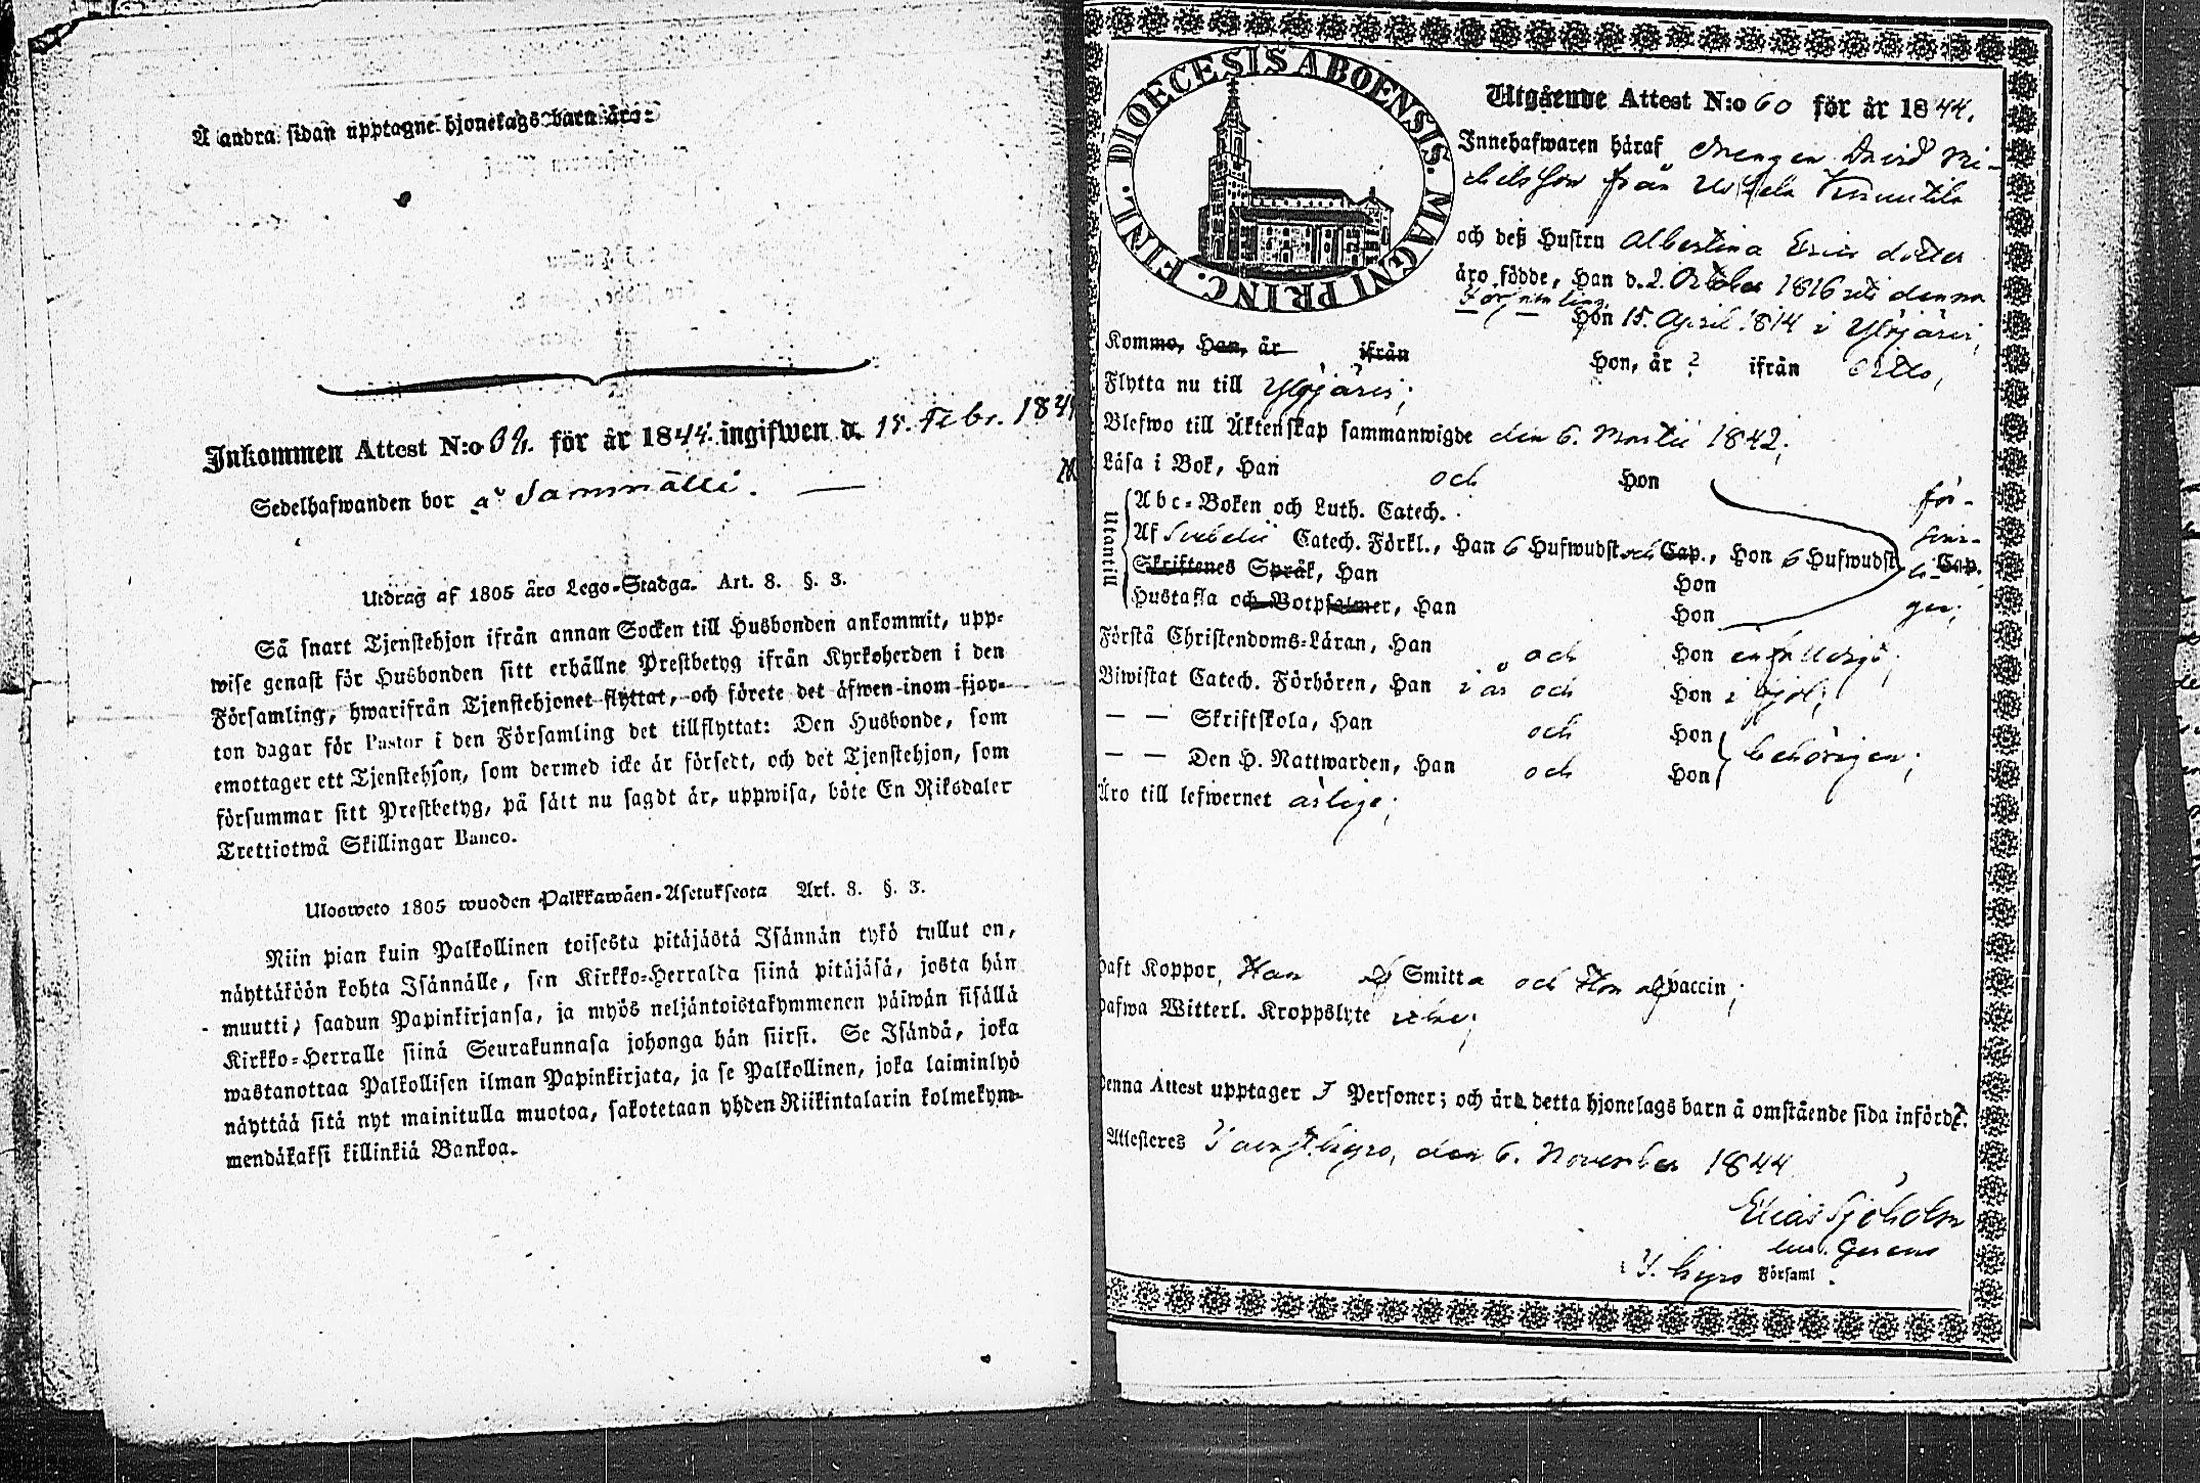 Å andra sidan upptagne hjonelags barn äro:
Inkommen Attest N:o för år 1844. ingifwen d. 15. Febr. 184
Sedelhafwanden bor å Sammälli. —
Utdrag af 1805 års Lego-Stadga. Art. 8. §. 3.
Så snart Tjenstehjon ifrån annan Socken till Husbonden ankommit, upp-
wise genast för Husbonden sitt erhållne Prestbetyg ifrån Kyrkoherden i den
Församling, hwarifrån Tjenstehjonet flyttat, och förete det äfwen inom fjor-
ton dagar för Pastor i den Församling det tillflyttat: Den Husbonde, som
emottager ett Tjenstehjon, som dermed icke är försedt, och det Tjenstehjon, som
försummar sitt Prestbetyg, på sätt nu sagdt är, uppwisa, böte En Riksdaler
Trettiotwå Skillingar Banco.
Ulosweto 1805 wuoden Palkkawäen-Asetuksesta Art. 8. §. 3.
Niin pian kuin Palkollinen toisesta pitäjästä Isännän tykö tullut on,
näyttäköön kohta Isännälle, sen Kirkko-Herralda siinä pitäjäsä, josta hän
muutti, saadun Papinkirjansa, ja myös neljäntoistakymmenen päiwän sisällä
Kirkko-Herralle siinä Seurakunnasa johonga hän siirsi. Se Isändä, joka
wastanottaa Palkollisen ilman Papinkirjata, ja se Palkollinen, joka laiminlyö
näyttää sitä nyt mainitulla muotoa, sakotetaan yhden Riikintalarin kolmekym-
mendäkaksi killinkiä Bankoa.
DIOECESIS ABOENSIS. MAGNI PRINC. FINL.
Utgående Attest N:o 60 för år 1844.
Innehafwaren häraf Drengen David Mi-
chelsson från
och deß Hustru Albertina Ericsdotter
äro födde, Han d. 2. October 1816 uti denna
Församling,
Hon 15. April 1814 i Ylöjärvi,
Kommo, Han, år ifrån Hon, år ? ifrån
Flytta nu till Ylöjärvi;
Blefwo till Äktenskap sammanwigde den 6. Martii 1842;
Läsa i Bok, Han och Hon
Utantill
Abc-Boken och Luth. Catech.
Af Svebelii Catech. Förkl., Han 6 Hufwudst. och Cap., Hon 6 Hufwudst. Cap.
Skriftenes Språk, Han Hon
Hustafla och Botpsalmer, Han Hon
för-
ger;
Förstå Christendoms-Läran, Han och Hon enfaldigt;
Biwistat Catech. Förhören, Han i år och Hon i fjol;
— — Skriftskola, Han och Hon
— — Den H. Nattwarden, Han och Hon behörigen;
Äro till lefwernet ärlige;
haft Koppor, Han af Smitta och Hon af vaccin;
hafwa Witterl. Kroppslyte icke;
Denna Attest upptager Personer; och äro detta hjonelags barn å omstående sida införde.
Attesteres den 6. November 1844.
Elias Sjöholm
i T. Kyro Församl.